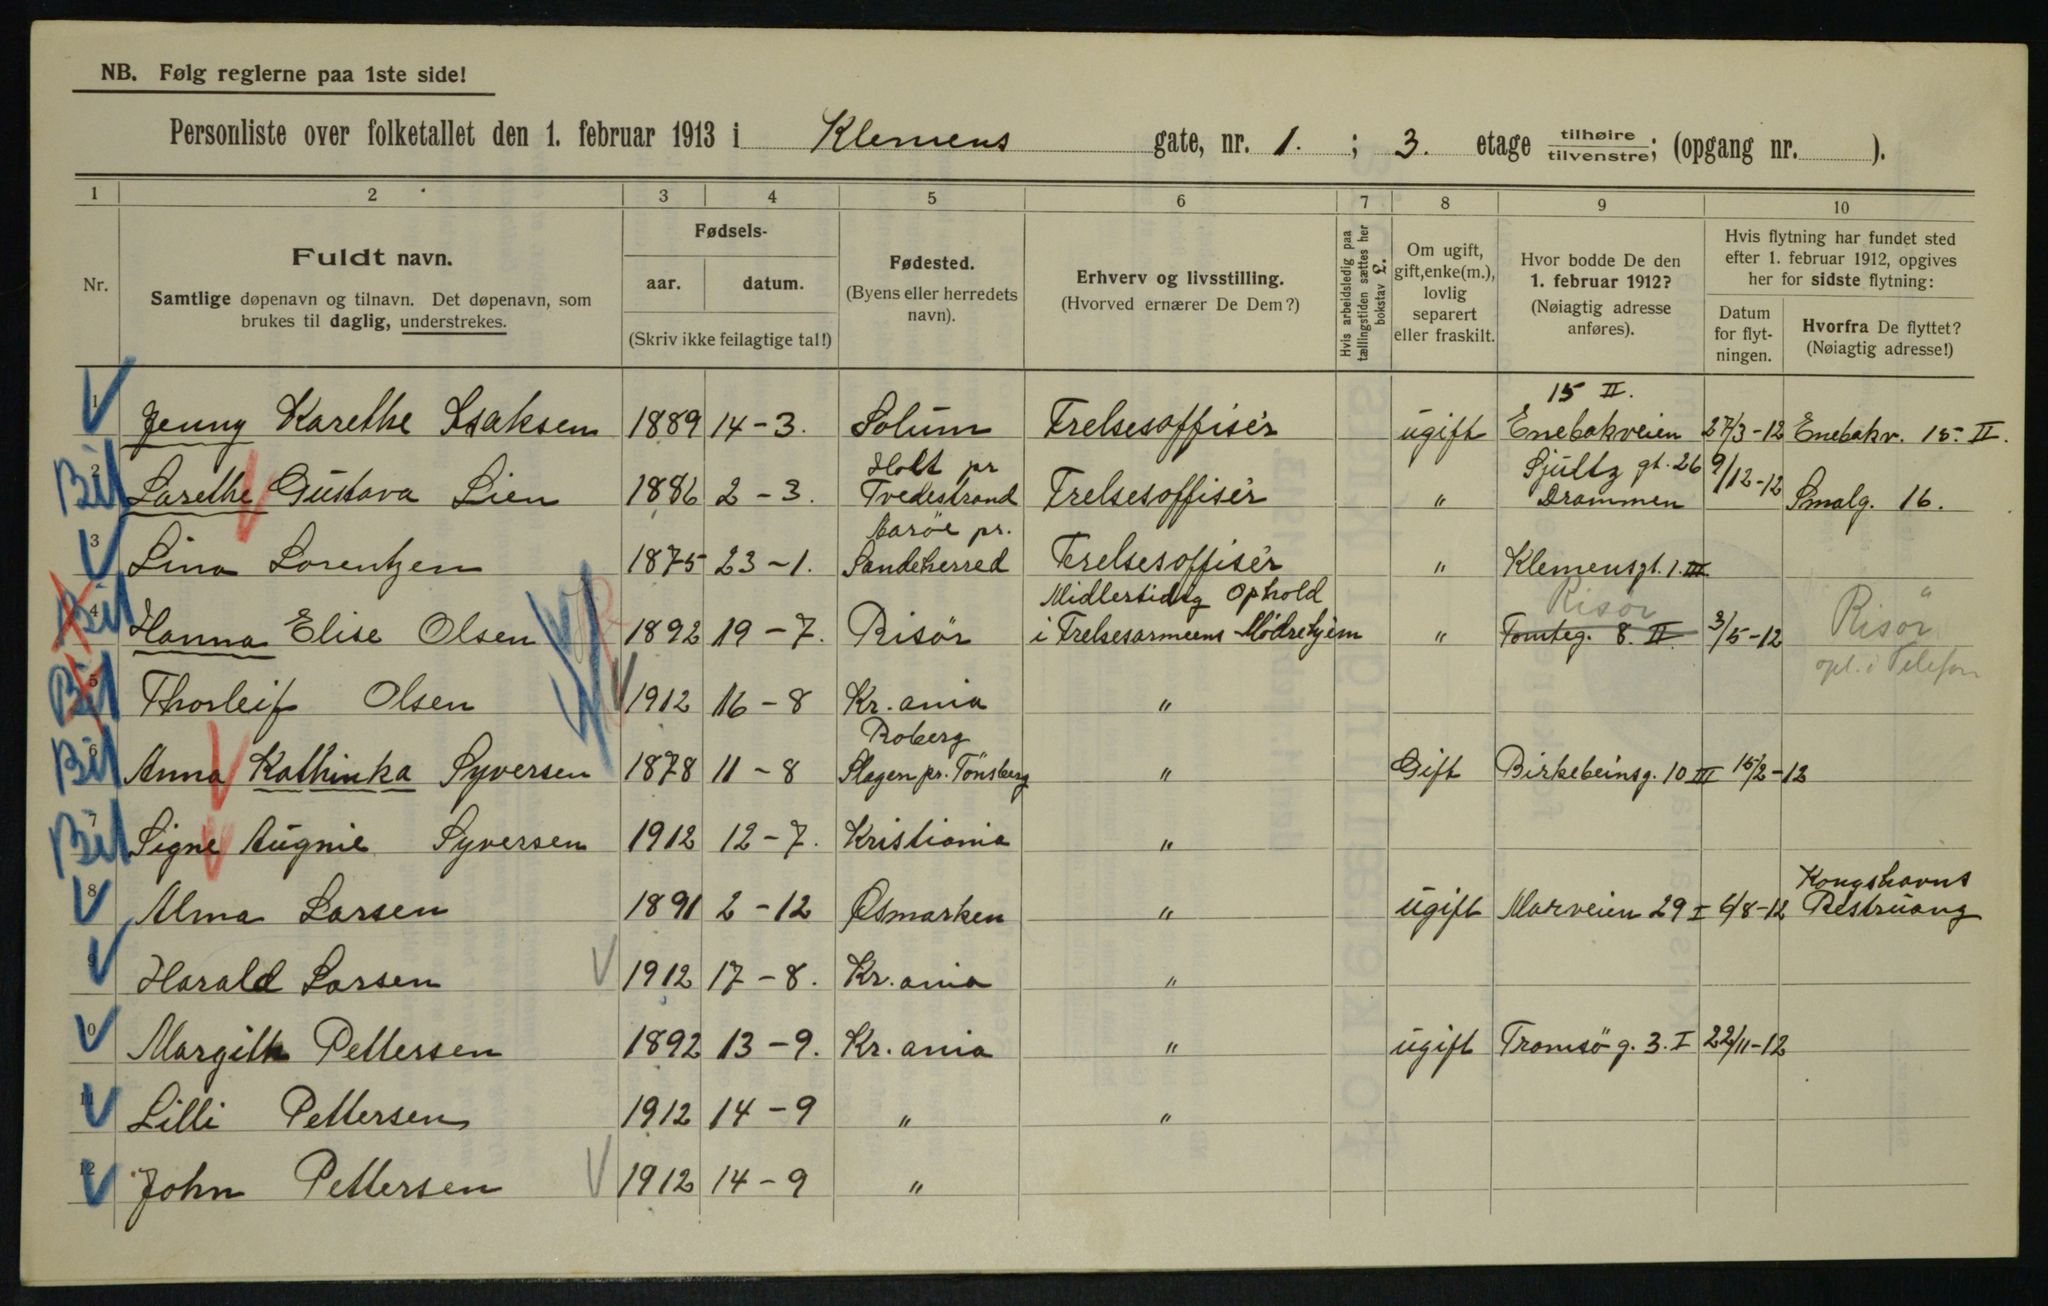 NB. Følg reglerne paa 1ste side!
Personliste over folketallet den 1. februar 1913 i Klemens gate, nr. 1. ; 3. etage tilhøire / tilvenstre; (opgang nr. ).
1 2 3 4 5 6 7 8 9 10
Nr.
Fuldt navn.
Samtlige døpenavn og tilnavn. Det døpenavn, som
brukes til daglig, understrekes.
Fødsels-
aar. datum.
(Skriv ikke feilagtige tal!)
Fødested.
(Byens eller herredets
navn).
Erhverv og livsstilling.
(Hvorved ernærer De Dem?)
Hvis arbeidsledig paa
tællingstiden sættes her
bokstav L.
Om ugift,
gift, enke(m.),
lovlig
separert
eller fraskilt.
Hvor bodde De den
1. februar 1912?
(Nøiagtig adresse
anføres).
Hvis flytning har fundet sted
efter 1. februar 1912, opgives
her for sidste flytning:
Datum
for flyt-
ningen.
Hvorfra De flyttet?
(Nøiagtig adresse!)
15 II.
1 Jenny Karethe Isaksen 1889 14-3. Solum Frelsesoffisér ugift Enebakveien 27/3-12 Enebakv. 15. II.
Holt pr Sjultz gt. 26
Bil 2 Larethe Gustava Lien 1886 2-3. Tvedestrand Frelsesoffisér " Drammen 9/12-12 Smalg. 16.
Marøe pr.
3 Lina Lorentzen 1875 23-1. Sandeherred Frelsesoffisér " Klemensgt. 1. III
Midlertidig Ophold Risör "
Bil 4 Hanna Elise Olsen 1892 19-7. Risör i Frelsesarmeens Mödrehjem " Tomteg. 8. II. 3/5-12 Risör
opl. i Telefon
Bil 5 Thorleif Olsen 1912 16-8 Kr.ania "
Roberg
Bil 6 Anna Kathinka Syversen 1878 11-8 Slagen pr. Tönsberg " Gift Birkebeinsg. 10 III 15/2-12
Bil 7 Signe Augnie Syversen 1912 12-7. Kristiania "
Kongshavns
8 Alma Larsen 1891 2-12 Øsmarken " ugift Marveien 29 I 6/8-12 Restruang
9 Harald Larsen 1912 17-8. Kr.ania "
10 Margith Pettersen 1892 13-9. Kr.ania " ugift Tromsö g. 3. I 22/11-12
11 Lilli Pettersen 1912 14-9 " "
12 John Pettersen 1912 14-9 "